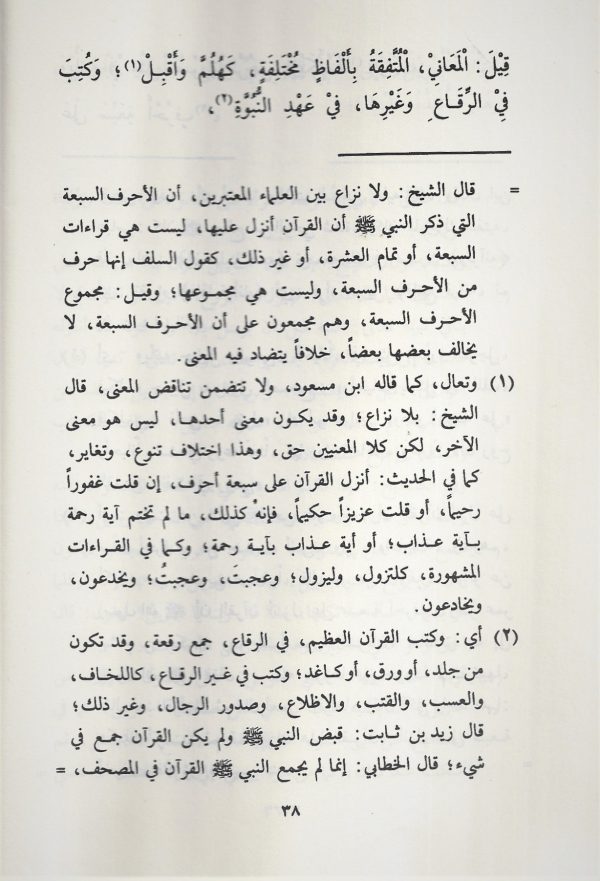 قِيْلَ: اَلْمَعَانِيْ، اَلْمُتَّفِقَةُ بِأَلْفَاظٍ مُخْتَلِفَةٍ، كَهَلُمَّ وَأَقْبِلْ(١)؛ وَكُتِبَ
فِيْ الرِّقَاعِ وَغَيْرِهَا، فِيْ عَهْدِ النُّبُوَّةِ(٢)،
= قال الشيخ: ولا نزاع بين العلماء المعتبرين، أن الأحرف السبعة
التي ذكر النبي ﷺ أن القرآن أنزل عليها، ليست هي قراءات
السبعة، أو تمام العشرة، أو غير ذلك، كقول السلف إنها حرف
من الأحرف السبعة، وليست هي مجموعها؛ وقيل: مجموع
الأحرف السبعة، وهم مجمعون على أن الأحرف السبعة، لا
يخالف بعضها بعضاً، خلافاً يتضاد فيه المعنى.
(١) وتعال، كما قاله ابن مسعود، ولا تتضمن تناقض المعنى، قال
الشيخ: بلا نزاع؛ وقد يكون معنى أحدها، ليس هو معنى
الآخر، لكن كلا المعنيين حق، وهذا اختلاف تنوع، وتغاير،
كما في الحديث: أنزل القرآن على سبعة أحرف، إن قلت غفوراً
رحيماً، أو قلت عزيزاً حكيماً، فإنهُ كذلك، ما لم تختم آية رحمة
بآية عذاب؛ أو أية عذاب بآية رحمة؛ وكما في القراءات
المشهورة، كلتزول، وليزول؛ وعجبتَ، وعجبتُ؛ ويخدعون،
ويخادعون.
(٢) أي: وكتب القرآن العظيم، في الرقاع، جمع رقعة، وقد تكون
من جلد، أو ورق، أو كاغد؛ وكتب في غير الرقاع، كاللخاف،
والعسب، والقتب، والاظلاع، وصدور الرجال، وغير ذلك؛
قال زيد بن ثابت: قبض النبي ﷺ ولم يكن القرآن جمع في
شيء؛ قال الخطابي: إنما لم يجمع النبي ﷺ القرآن في المصحف، =
٣٨